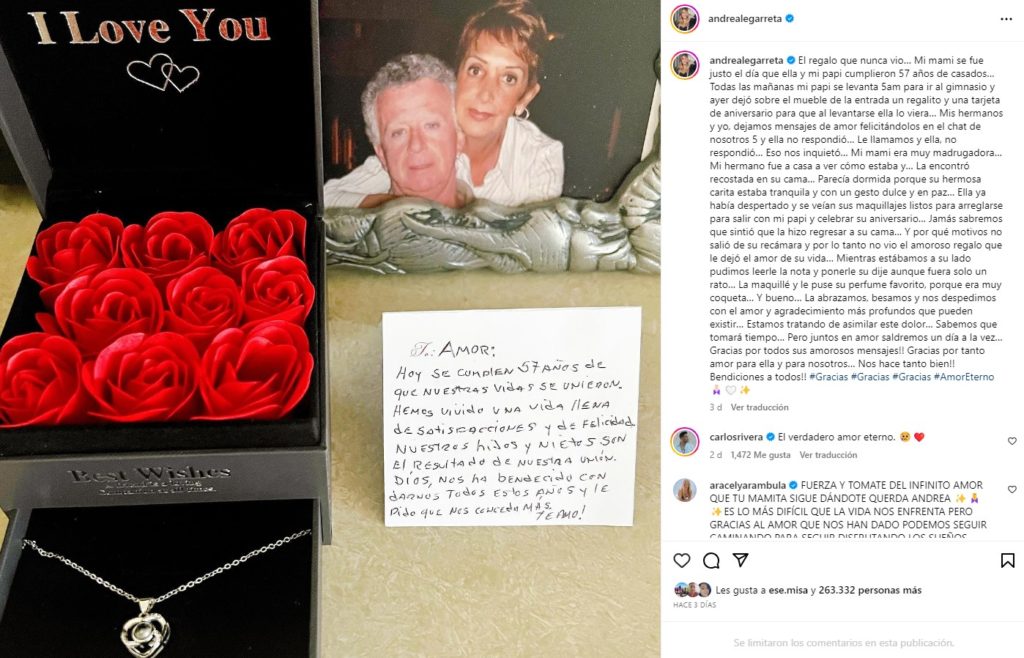 I Love You
To: AMOR:
HOY SE CUMPLEN 57 AÑOS DE
QUE NUESTRAS VIDAS SE UNIERON.
HEMOS VIVIDO UNA VIDA LLENA
DE SATISFACCIONES Y DE FELICIDAD
NUESTROS HIJOS Y NIETOS SON
EL RESULTADO DE NUESTRA UNIÓN.
DIOS, NOS HA BENDECIDO CON
DARNOS TODOS ESTOS AÑOS Y LE
PIDO QUE NOS CONCEDA MAS.
TE AMO!
Best Wishes
andrealegarreta
andrealegarreta El regalo que nunca vio... Mi mami se fue
justo el día que ella y mi papi cumplieron 57 años de casados...
Todas las mañanas mi papi se levanta 5am para ir al gimnasio y
ayer dejó sobre el mueble de la entrada un regalito y una tarjeta
de aniversario para que al levantarse ella lo viera... Mis hermanos
y yo, dejamos mensajes de amor felicitándolos en el chat de
nosotros 5 y ella no respondió... Le llamamos y ella, no
respondió... Eso nos inquietó... Mi mami era muy madrugadora...
Mi hermano fue a casa a ver cómo estaba y... La encontró
recostada en su cama... Parecía dormida porque su hermosa
carita estaba tranquila y con un gesto dulce y en paz... Ella ya
había despertado y se veían sus maquillajes listos para arreglarse
para salir con mi papi y celebrar su aniversario... Jamás sabremos
que sintió que la hizo regresar a su cama... Y por qué motivos no
salió de su recámara y por lo tanto no vio el amoroso regalo que
le dejó el amor de su vida... Mientras estábamos a su lado
pudimos leerle la nota y ponerle su dije aunque fuera solo un
rato... La maquillé y le puse su perfume favorito, porque era muy
coqueta... Y bueno... La abrazamos, besamos y nos despedimos
con el amor y agradecimiento más profundos que pueden
existir... Estamos tratando de asimilar este dolor... Sabemos que
tomará tiempo... Pero juntos en amor saldremos un día a la vez...
Gracias por todos sus amorosos mensajes!! Gracias por tanto
amor para ella y para nosotros... Nos hace tanto bien!!
Bendiciones a todos!! #Gracias #Gracias #Gracias #AmorEterno
🧘🏻‍♀️🤍✨
3 d Ver traducción
carlosrivera El verdadero amor eterno. 🥹 ❤️
2 d 1,472 Me gusta Ver traducción
aracelyarambula FUERZA Y TOMATE DEL INFINITO AMOR
QUE TU MAMITA SIGUE DÁNDOTE QUERDA ANDREA ✨🧘🏻‍♀️
✨ES LO MÁS DIFÍCIL QUE LA VIDA NOS ENFRENTA PERO
GRACIAS AL AMOR QUE NOS HAN DADO PODEMOS SEGUIR
CAMINANDO PARA SEGUIR DISFRUTANDO LOS SUEÑOS
Les gusta a ese.misa y 263.332 personas más
HACE 3 DÍAS
Se limitaron los comentarios en esta publicación.